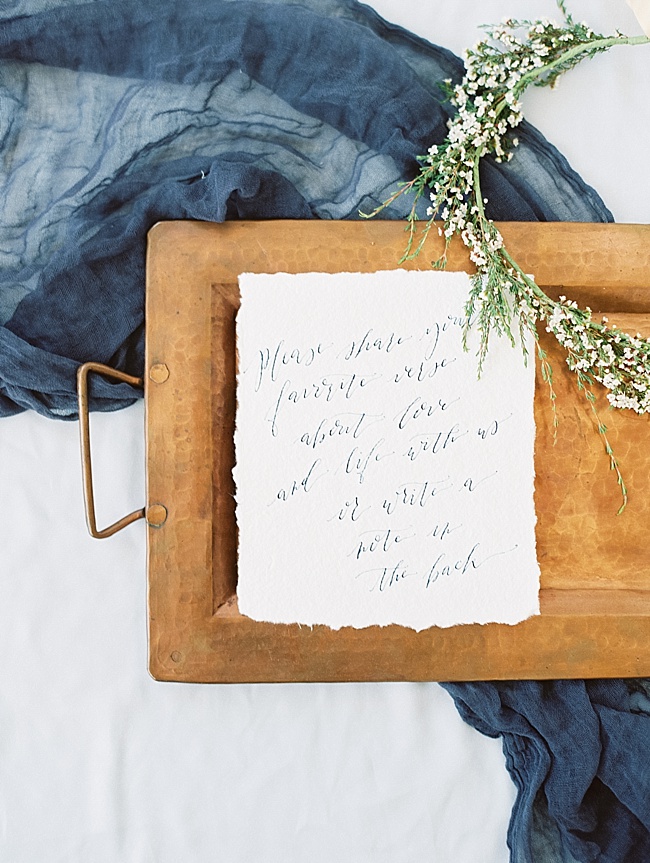 Please share your
favorite verse
about love
and life with us
or write a
note in
the back